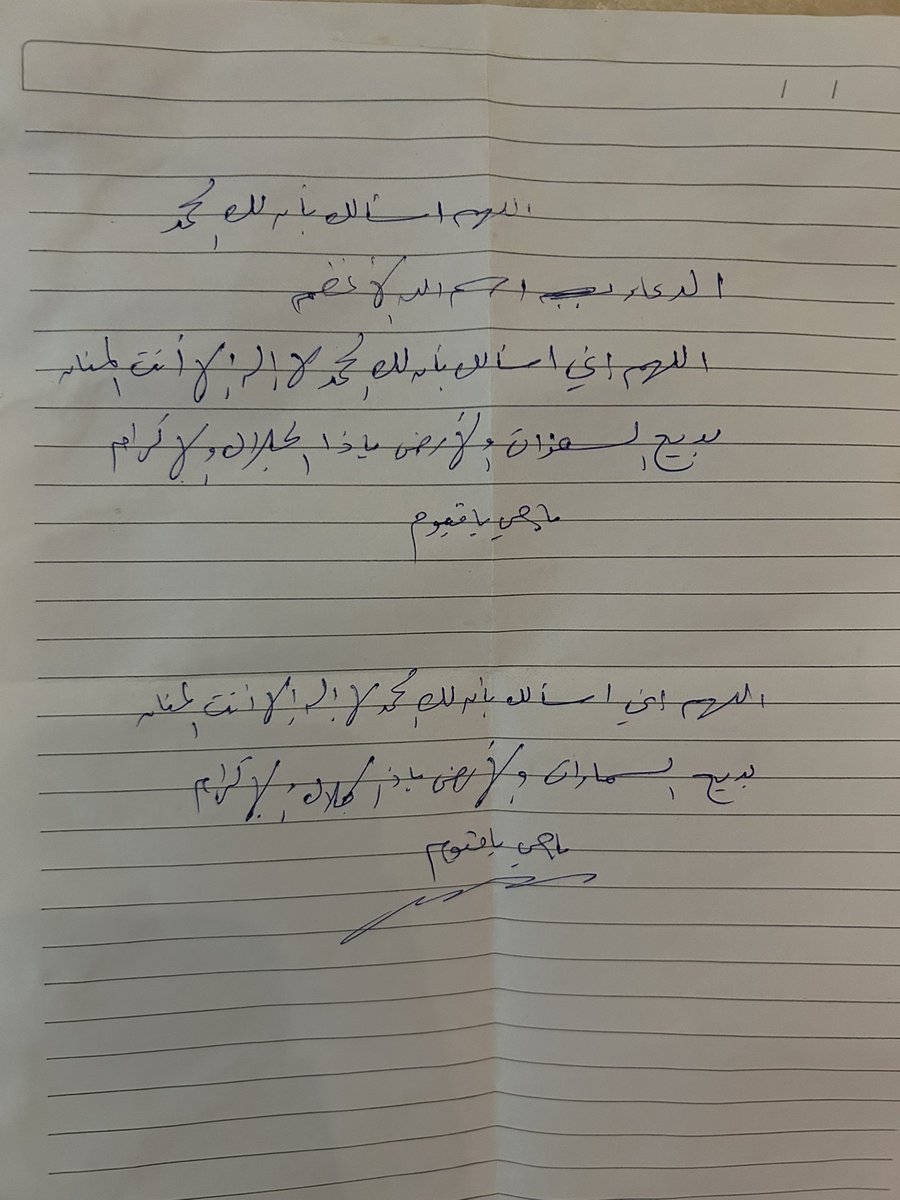 اللهم اسألك بأن لك الحمد
الدعاء ب اسم الله الأعظم
اللهم إني اسألك بأن لك الحمد لا إله إلا أنت المنان
بديع السموات والأرض ياذا الجلال والإكرام
ياحي ياقيوم
اللهم إني اسألك بأن لك الحمد لا إله إلا أنت المنان
بديع السماوات والأرض ياذا الجلال والإكرام
ياحي ياقيوم